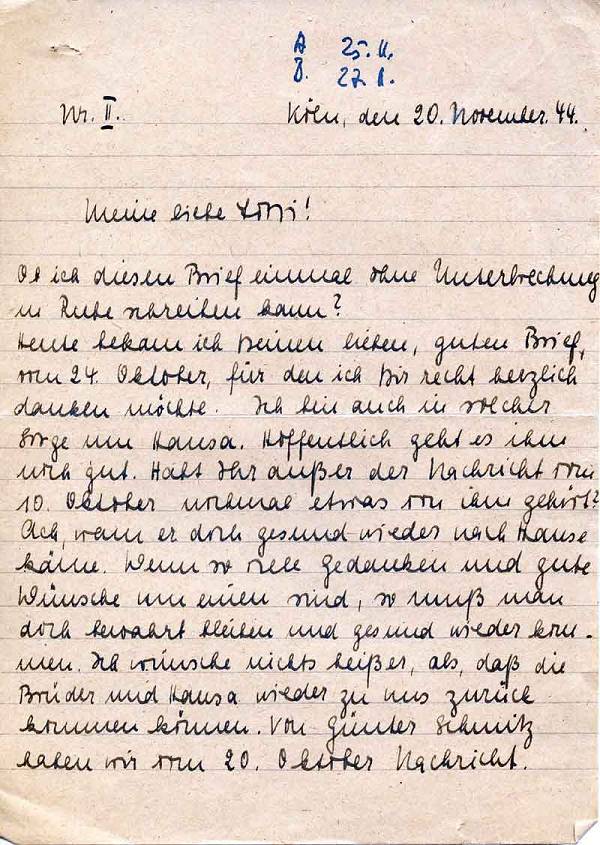 A 25.11.
B. 27.11.
Nr. II.
Köln, den 20. November 44.
Meine liebe
Ob ich diesen Brief einmal ohne Unterbrechung
in Ruhe schreiben kann?
Heute bekam ich Deinen lieben, guten Brief,
vom 24. Oktober, für den ich Dir recht herzlich
danken möchte. Ich bin auch in solcher
Sorge um Hansa. Hoffentlich geht es ihm
noch gut. Habt Ihr außer der Nachricht vom
10. Oktober nochmal etwas von ihm gehört?
Ach, wann er doch gesund wieder nach Hause
käme. Wenn so viele Gedanken und gute
Wünsche um einen sind, so muß man
doch bewahrt bleiben und gesund wieder kom-
men. Ich wünsche nichts heißer, als, daß die
Brüder und Hansa wieder zu uns zurück
kommen können. Von Günter Schmitz
haben wir vom 20. Oktober Nachricht.